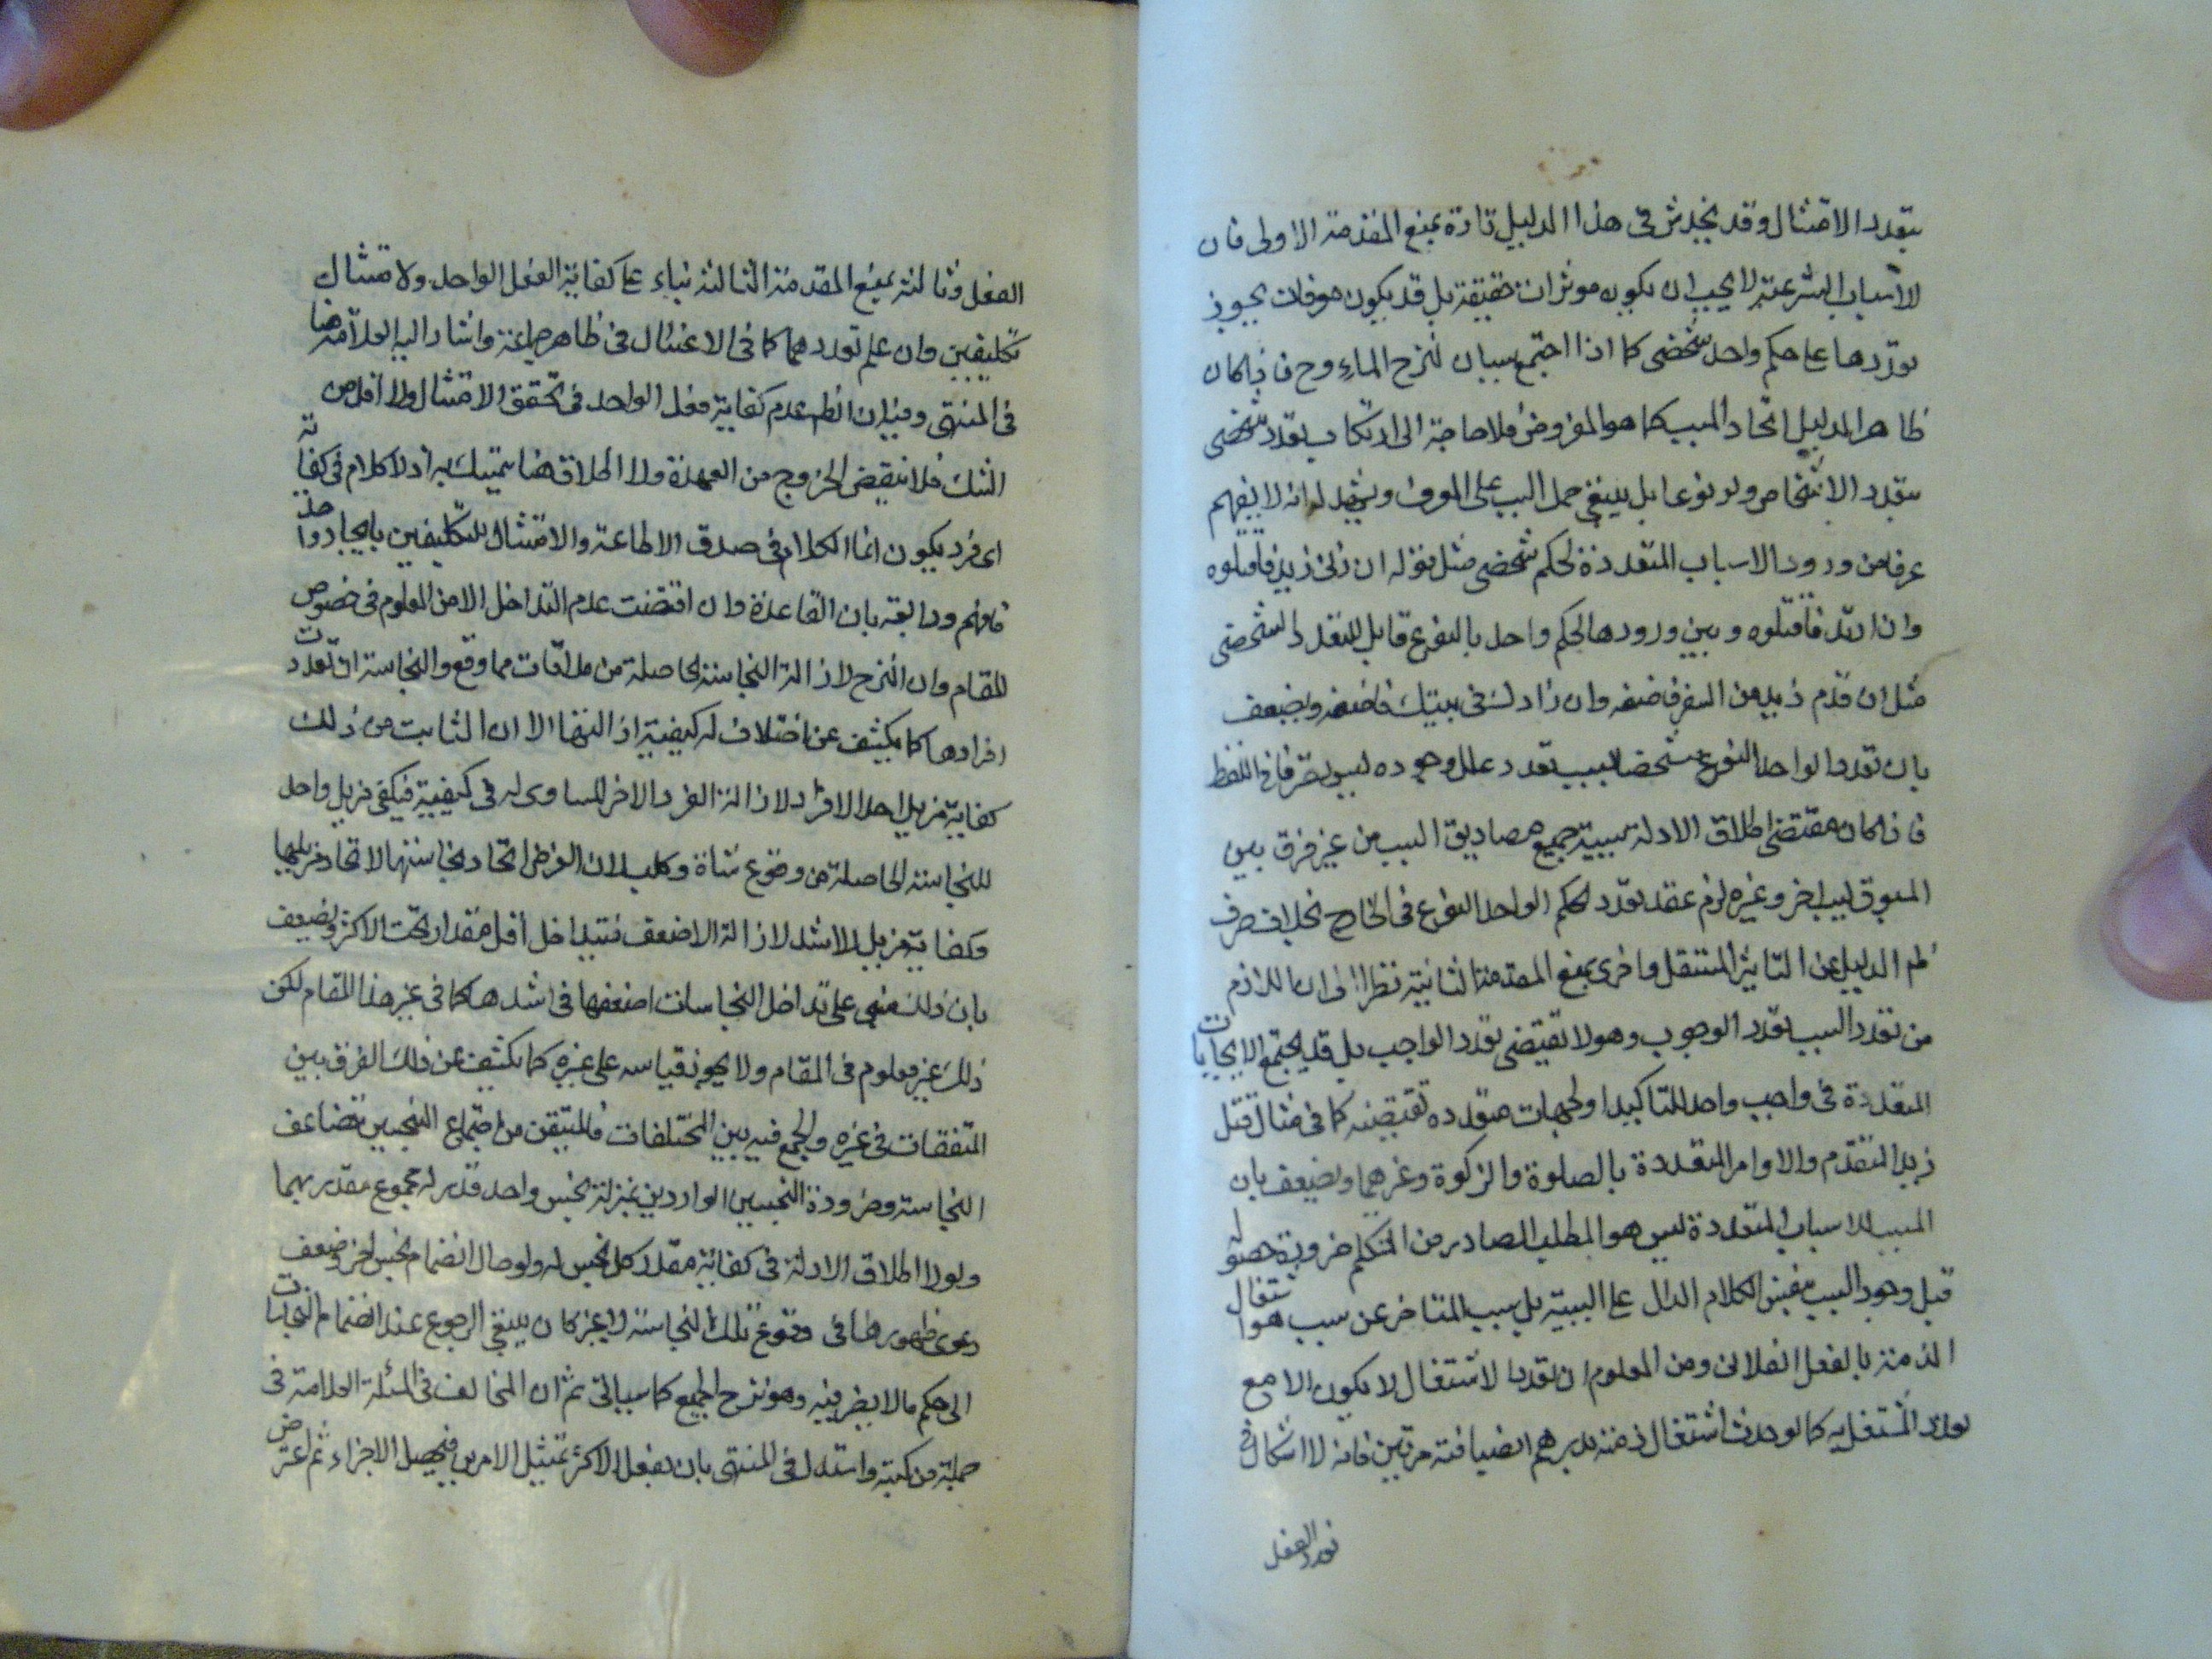 بتعدد الامتثال وقد يخدش فى هذا الدليل تارة بمنع المقدمة الاولى فان
الاسباب الشرعية لا يجب ان يكون موثرات حقيقية بل قد يكون معرفات يجوز
تواردها على حكم واحد شخصى كما اذا اجتمع سببان لنزح الماء وح فاذا كان
ظاهر الدليل اتحاد المسبب كما هو المفروض فلا حاجة الى ارتكاب تعدد شخصى
بتعدد الاشخاص ولو نوعا بل ينبغى حمل السبب على المعرف ويشهد له انه لا يفهم
عرفا من ورود الاسباب المتعددة لحكم شخصى مثل قوله ان زنى زيد فاقتلوه
وان ارتد فاقتلوه وبين ورودها لحكم واحد بالنوع قابل للتعدد الشخصى
مثل ان قدم زيد من السفر فاضفه وان زارك فى بيتك فاضفه ويضعف
بان تعدد الواحد النوع شخصا بسبب تعدد علل وجوده ليس تصرفا فى اللفظ
فاذا كان مقتضى اطلاق الادلة سببية جميع مصاديق السبب من غير فرق بين
المسبوق بسبب اخر وغيره لزم عقلا تعدد الحكم الواحد النوع فى الخارج بخلاف صرف
ظم الدليل عن التاثير المستقل واخرى بمنع المقدمة الثانية نظرا الى ان اللازم
من تعدد السبب تعدد الوجوب وهو لا يقتضى تعدد الواجب بل قد يجتمع الايجابات
المتعددة فى واجب واحد للتاكيد او لجهات متعدده تقتضيه كما فى مثال قتل
زيد المتقدم والاوامر المتعددة بالصلوة والزكوة وغيرهما ويضعف بان
المسبب للاسباب المتعددة ليس هو الطلب الصادر من المتكلم ضرورة حصوله
قبل وجود السبب بنفس الكلام الدال على السببية بل مسبب المتاخر عن سبب هو اشتغال
الذمة بالفعل الفلانى ومن المعلوم ان تعدد الاشتغال لا يكون الا مع
تعدد المشتغل به كما لو حدث اشتغال ذمته بدرهم الضيافة مرتين فانه لا اشكال فى
تعدد الفعل
الفعل وثالثة بمنع المقدمة الثالثة بناء على كفاية الفعل الواحد ولامتثال
تكليفين وان علم تعددهما كما فى الاغتسال فى ظاهر جماعة واشار اليه العلامة رضا
فى المنتهى وفيه ان الظم عدم كفاية فعل الواحد فى تحقق الامتثال ولا اقل من
الشك فلا نقيض الخروج من العهدة ولا اطلاق هنا يتمسك به اذ لا كلام فى كفاية
اى فرد يكون انما الكلام فى صدق الاطاعة والامتثال للتكليفين بايجاد واحد
فافهم ورابعة بان القاعدة وان اقتضت عدم التداخل الا من المعلوم فى خصوص
المقام وان النزح لازالة النجاسة الحاصلة من ملاقات مما وقع والنجاسة ان تعددت
افرادها كما يكشف عن اختلاف له كيفية ازالتها الا ان الثابت من ذلك
كفاية مزيل احد الافراد لازالة الفرد الاخر المساوى له فى كيفيته فيكفى مزيل واحد
للنجاسة الحاصلة من وقوع شاة وكلب لان الفرض اتحاد نجاستهما لاتحاد مزيلهما
وكفاية مزيل الاشد لازالة الاضعف فيتداخل اقل مقدار تحت الاكثر ويضعف
بان ذلك مبنى على تداخل النجاسات اضعفها فى اشدها كما فى غير هذا المقام لكن
ذلك غير معلوم فى المقام ولا يجوز قياسه على غيره كما يكشف عن ذلك الفرق بين
المتفقات فى غيره والجمع فيه بين المختلفات فالمتيقن من اجتماع النجسين تضاعف
النجاسة وضرورة النجسين الواردين بمنزلة نجس واحد قدر له مجموع مقدريهما
ولولا اطلاق الادلة فى كفاية مقدر كل نجس له ولو حال انضمام نجس اخر وضعف
دعوى ظهورها فى وقوع تلك النجاسة لا غير كان ينبغى الرجوع عند انضمام النجاسات
الى حكم ما لا نص فيه وهو نزح الجميع كما سيأتى ثم ان المخالف فى المسئلة العلامة فى
جملة من كتبه واستدل فى المنتهى بان بفعل الاكثر يمتثل الامرين فيحصل الاجزاء ثم اعترض